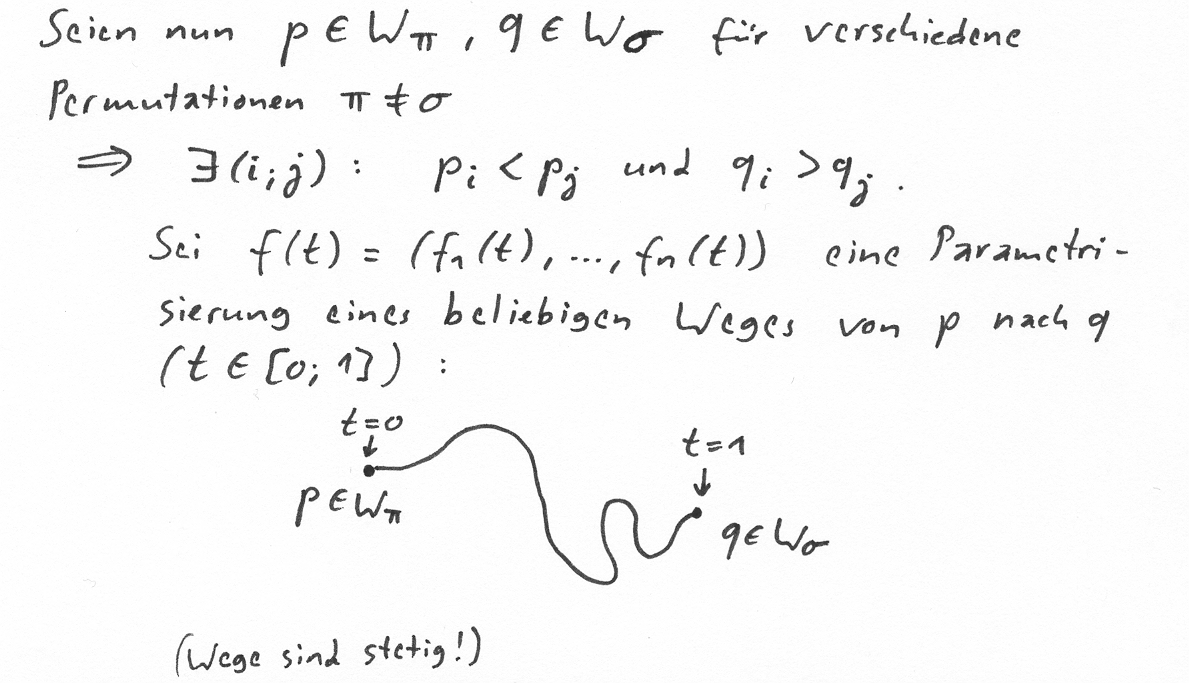 Seien nun p ∈ W_π , q ∈ W_σ für verschiedene
Permutationen π ≠ σ
⇒ ∃(i;j) : p_i < p_j und q_i > q_j .
Sei f(t) = (f_1(t), ..., f_n(t)) eine Parametri-
sierung eines beliebigen Weges von p nach q
(t ∈ [0; 1]) :
t=0
t=1
p ∈ W_π
q ∈ W_σ
(Wege sind stetig!)